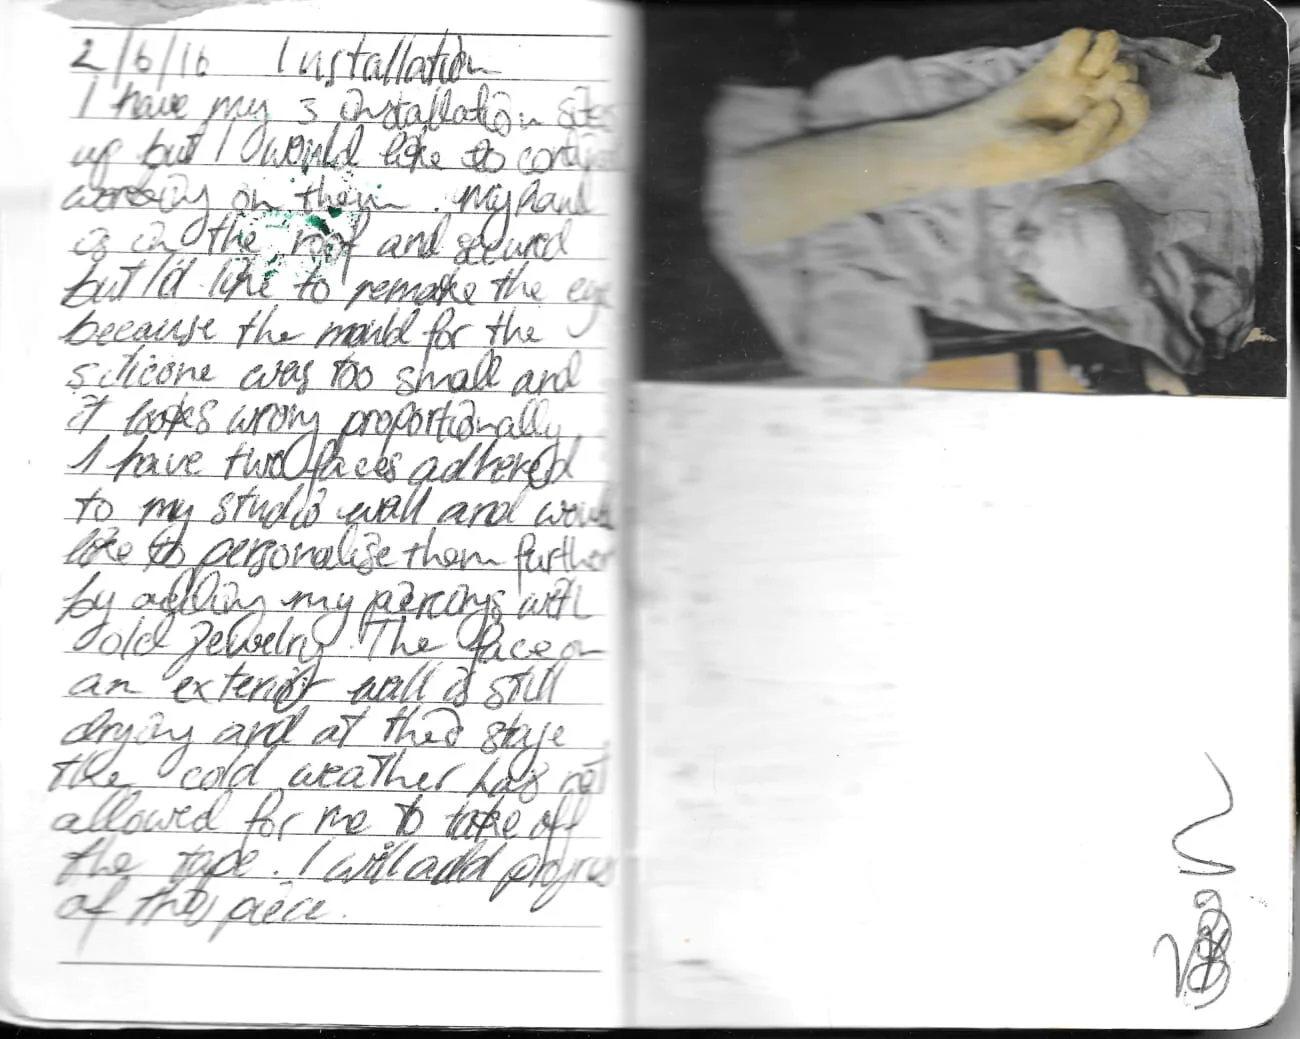 2/6/16 Installation
I have my 3 installation sites
up but I would like to continue
working on them. My hand
is in the roof and secured
but I'd like to remake the eye
because the mould for the
silicone was too small and
it looks wrong proportionally
I have two faces adhered
to my studio wall and would
like to personalise them further
by adding my piercings with
old jewelry. The face on
an exterior wall is still
drying and at this stage
the cold weather has not
allowed for me to take off
the tape. I will add progress
of this piece.